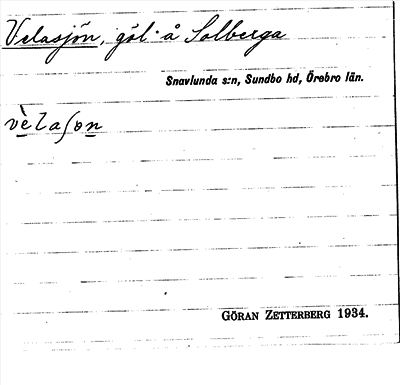 Velasjön, göl å Solberga
Snavlunda s:n, Sundbo hd, Örebro län.
vèlaʃɷn
GÖRAN ZETTERBERG 1934.